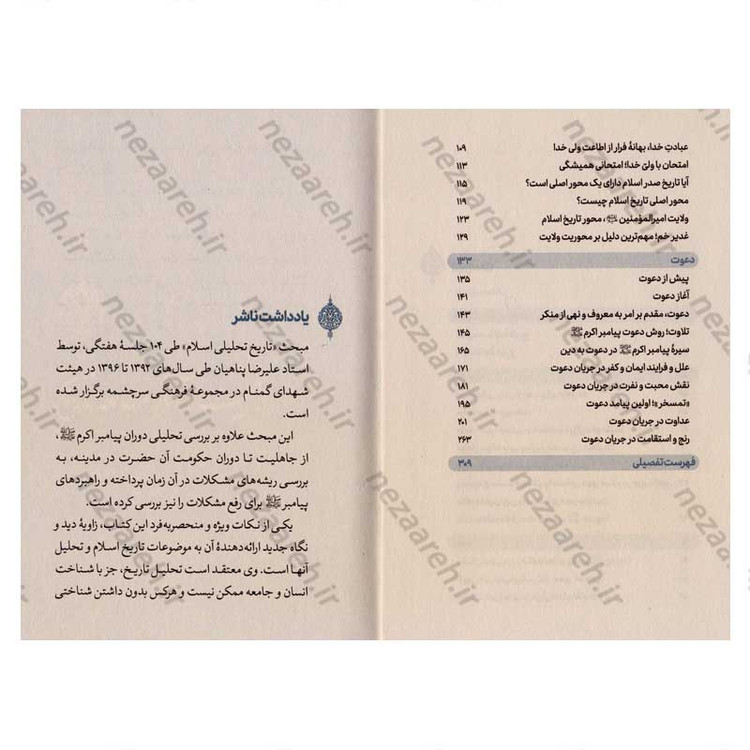 عبادتِ خدا، بهانهٔ فرار از اطاعت ولی خدا ۱۰۹
امتحان با ولیّ خدا؛ امتحانی همیشگی ۱۱۳
آیا تاریخ صدر اسلام دارای یک محور اصلی است؟ ۱۱۵
محور اصلی تاریخ اسلام چیست؟ ۱۱۹
ولایت امیرالمؤمنین، محور تاریخ اسلام ۱۲۳
غدیر خم؛ مهم‌ترین دلیل بر محوریت ولایت ۱۲۹
دعوت ۱۳۳
پیش از دعوت ۱۳۵
آغاز دعوت ۱۴۱
دعوت، مقدم بر امر به معروف و نهی از منکر ۱۴۳
تلاوت؛ روش دعوت پیامبر اکرم ﷺ ۱۴۵
سیرهٔ پیامبر اکرم ﷺ در دعوت به دین ۱۶۵
علل و فرایند ایمان و کفر در جریان دعوت ۱۷۱
نقش محبت و نفرت در جریان دعوت ۱۸۱
«تمسخر»؛ اولین پیامد دعوت ۱۹۵
عداوت در جریان دعوت ۲۰۱
رنج و استقامت در جریان دعوت ۲۶۳
فهرست تفصیلی ۳۰۹
یادداشت ناشر
مبحث «تاریخ تحلیلی اسلام» طی ۱۰۴ جلسهٔ هفتگی، توسط
استاد علیرضا پناهیان طی سال‌های ۱۳۹۲ تا ۱۳۹۶ در هیئت
شهدای گمنام در مجموعهٔ فرهنگی سرچشمه برگزار شده
است.
این مبحث علاوه بر بررسی تحلیلی دوران پیامبر اکرم ﷺ،
از جاهلیت تا دوران حکومت آن حضرت در مدینه، به
بررسی ریشه‌های مشکلات در آن زمان پرداخته و راهبردهای
پیامبر ﷺ برای رفع مشکلات را نیز بررسی کرده است.
یکی از نکات ویژه و منحصربه‌فرد این کتاب، زاویهٔ دید و
نگاه جدید ارائه‌دهندهٔ آن به موضوعات تاریخ اسلام و تحلیل
آنها است. وی معتقد است تحلیل تاریخ، جز با شناخت
انسان و جامعه ممکن نیست و هرکس بدون داشتن شناختی
nezaareh.ir
nezaareh.ir
nezaareh.ir
nezaareh.ir
nezaareh.ir
nezaareh.ir
nezaareh.ir
nezaareh.ir
nezaareh.ir
nezaareh.ir
nezaareh.ir
nezaareh.ir